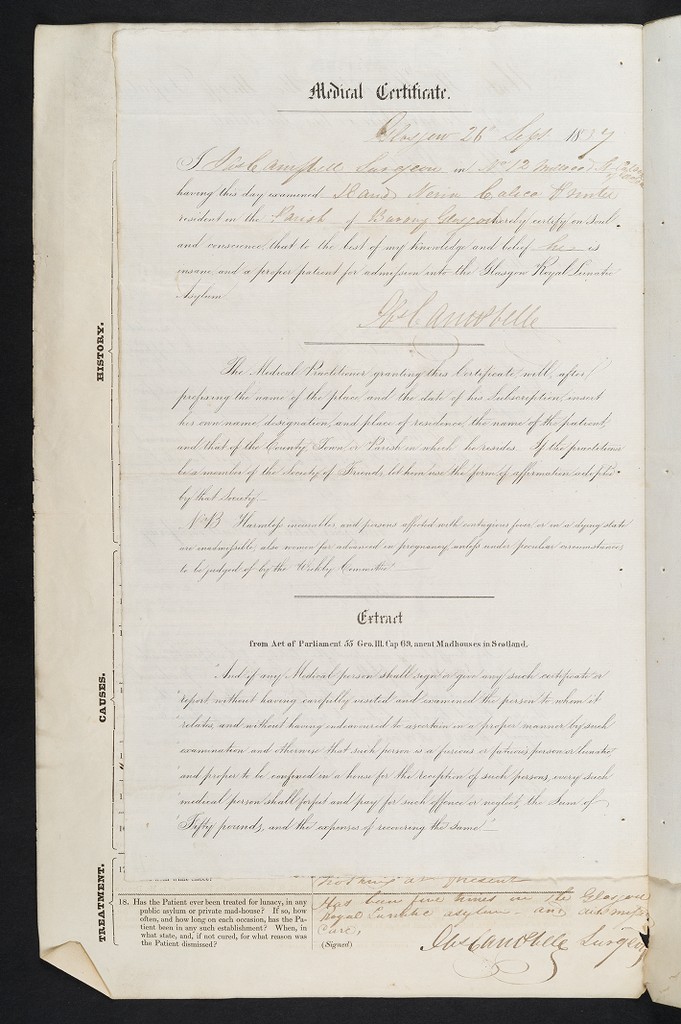 Medical Certificate.
Glasgow 26 Sept 1837
I Campbell Surgeon in No 12
having this day examined Calico Printer
resident in the Parish of Barony Glasgow hereby certify on Soul
and conscience, that to the best of my knowledge and belief he is
insane, and a proper patient for admission into the Glasgow Royal Lunatic
Asylum
Campbelle
The Medical Practitioner granting this Certificate will, after
prefixing the name of the place and the date of his Subscription, insert
his own name, designation, and place of residence, the name of the patient,
and that of the County, Town, or Parish in which he resides. If the practitioner
be a member of the Society of Friends, let him use the form of affirmation adopted
by that Society
NB Harmless incurables and persons affected with contagious fever or in a dying state
are inadmissible, also women far advanced in pregnancy, unless under peculiar circumstances,
to be judged of by the Weekly Committee
Extract
from Act of Parliament 55 Geo. III. Cap 69, anent Madhouses in Scotland.
"And if any Medical person shall sign or give any such certificate or
"report without having carefully visited and examined the person to whom it
"relates, and without having endeavoured to ascertain in a proper manner by such
"examination and otherwise that such person is a furious or fatuous person or lunatic,
"and proper to be confined in a house for the reception of such persons, every such
"medical person shall forfeit and pay for such offence or neglect, the Sum of
"Fifty pounds, and the expenses of recovering the same."
HISTORY.
CAUSES.
TREATMENT.
nothing at present
18. Has the Patient ever been treated for lunacy, in any
public asylum or private mad-house? If so, how
often, and how long on each occasion, has the Pa-
tient been in any such establishment? When, in
what state, and, if not cured, for what reason was
the Patient dismissed?
Has been five times in the Glasgow
Royal Lunatic asylum and
cure,
(Signed)
Campbelle Surgeon